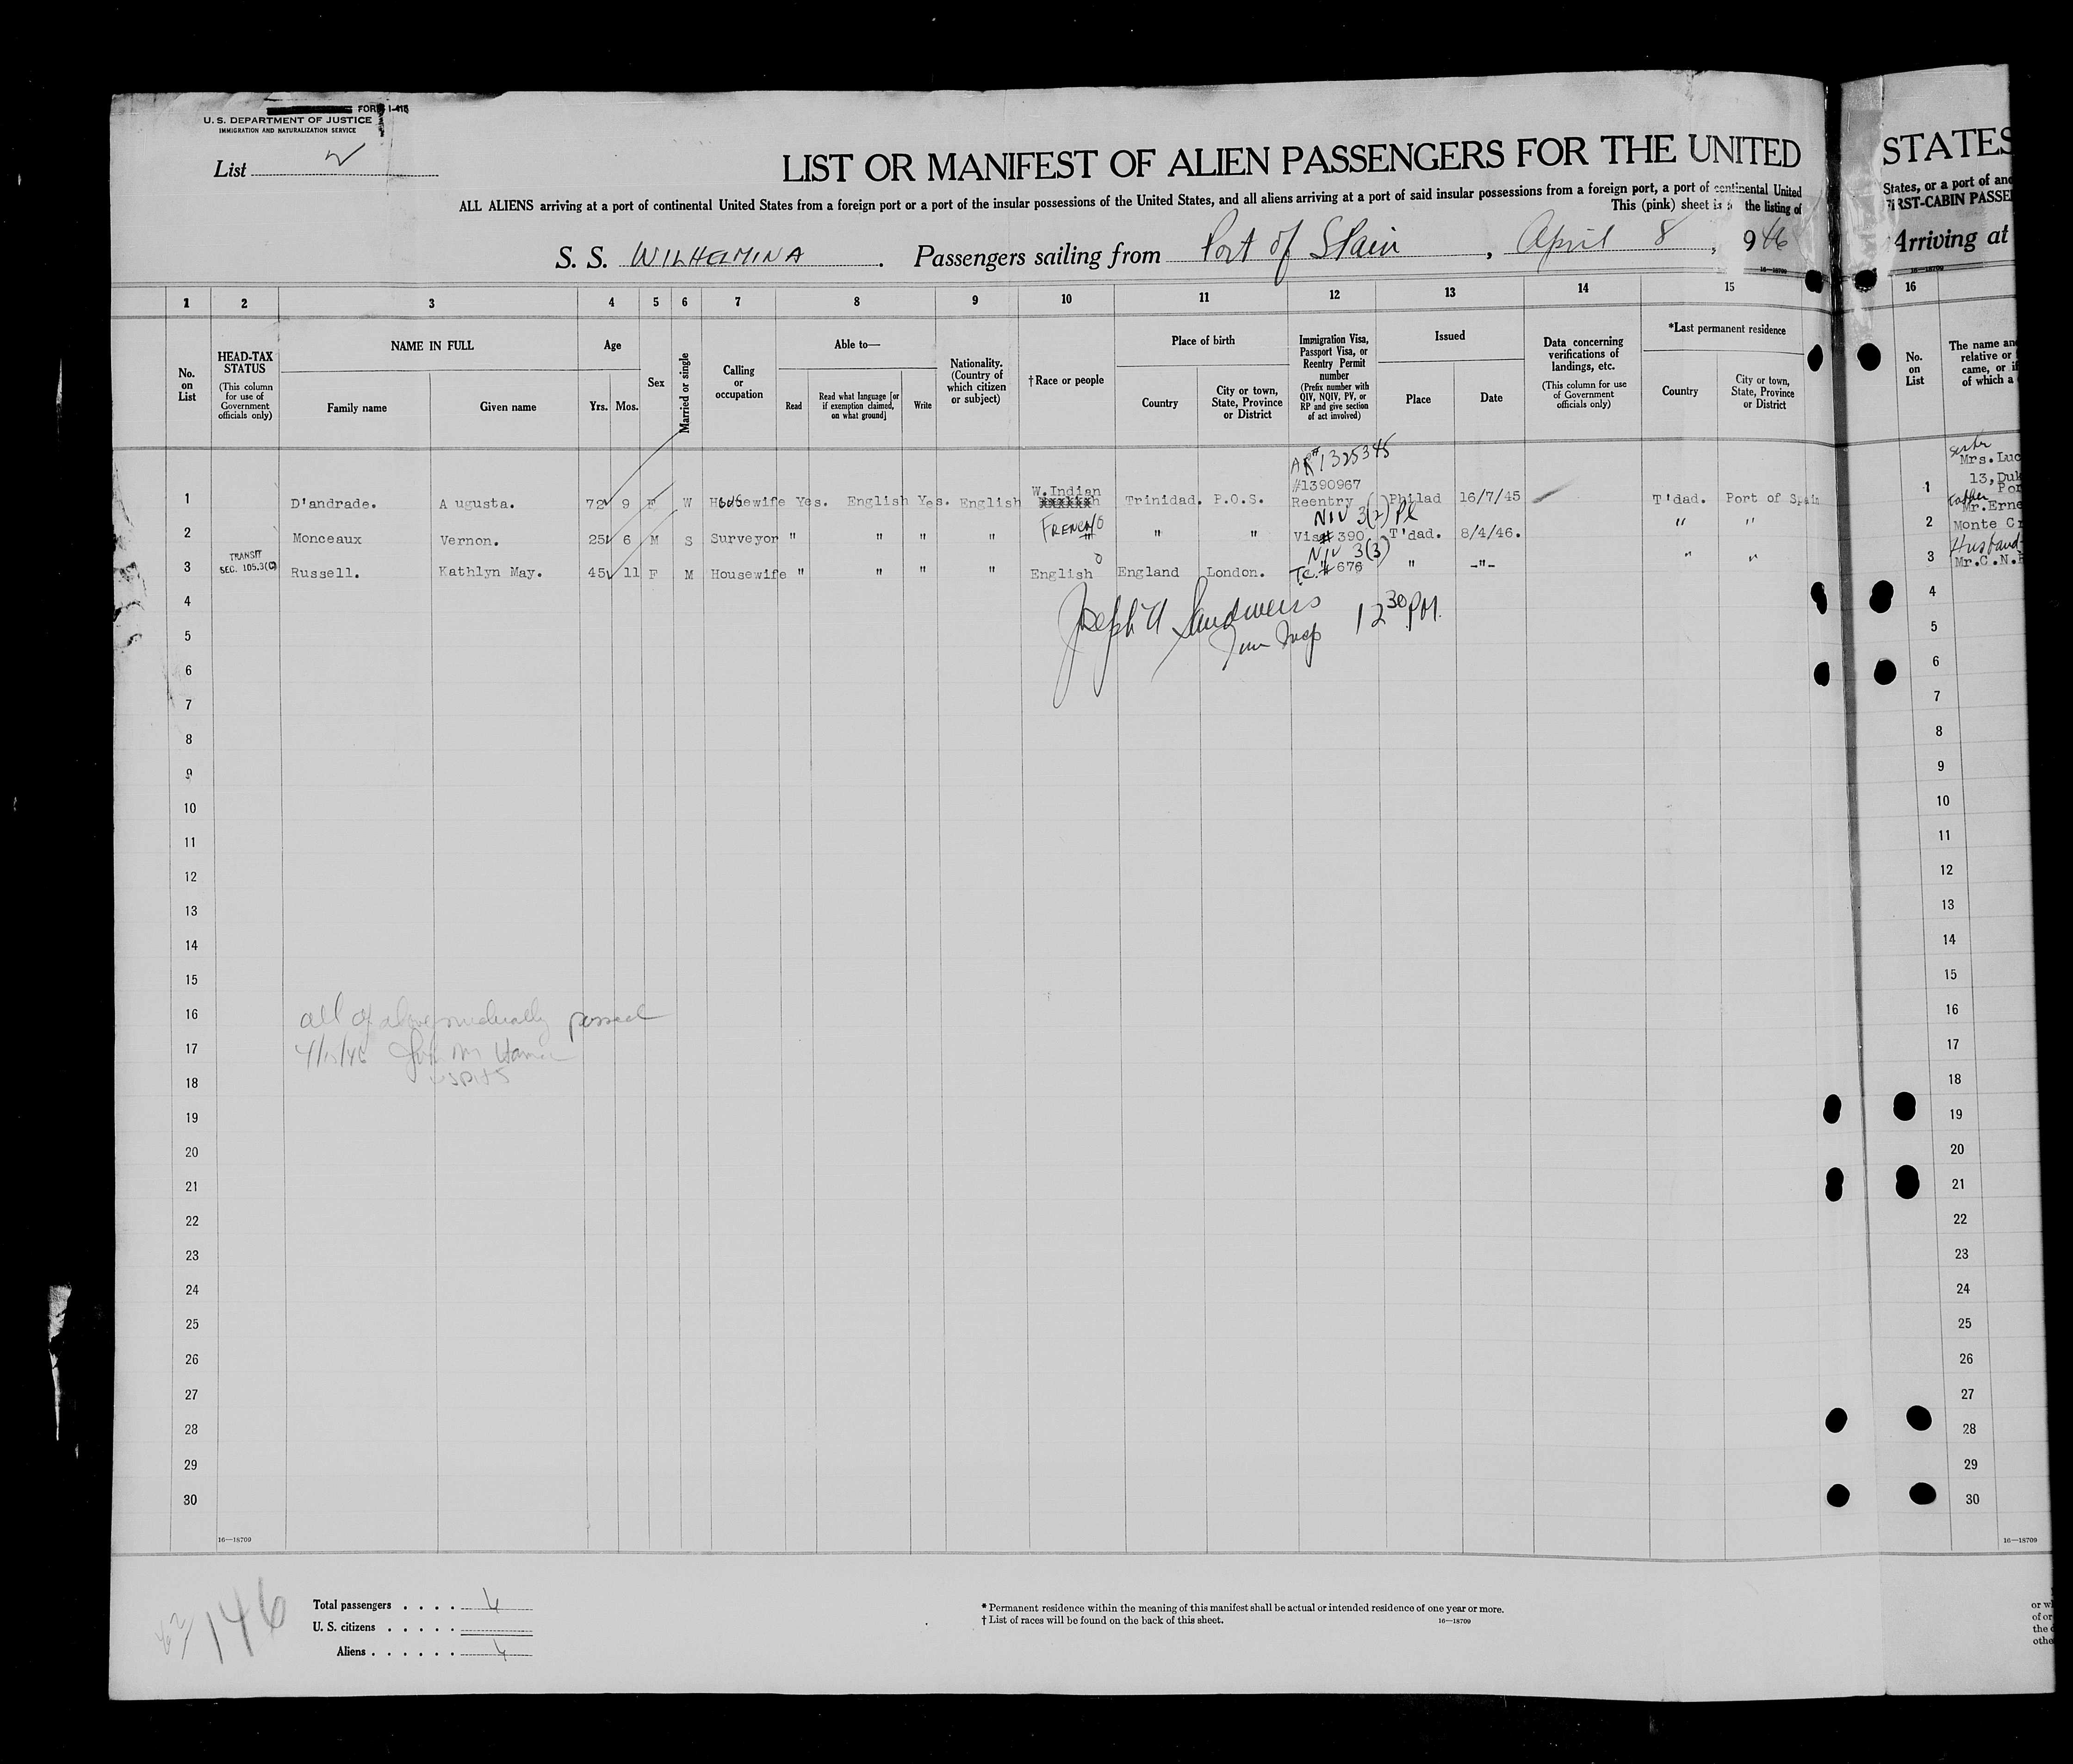 FORM I-415
U. S. DEPARTMENT OF JUSTICE
IMMIGRATION AND NATURALIZATION SERVICE
List
LIST OR MANIFEST OF ALIEN PASSENGERS FOR THE UNITED
ALL ALIENS arriving at a port of continental United States from a foreign port or a port of the insular possessions of the United States, and all aliens arriving at a port of said insular possessions from a foreign port, a port of continental United
This (pink) sheet is the listing of
S. S. WILHELMINA. Passengers sailing from Port of Spain, April 8, 946
16—18709
1 2 3 4 5 6 7 8 9 10 11 12 13 14 15
No. on List
HEAD-TAX STATUS
(This column for use of Government officials only)
NAME IN FULL
Family name Given name
Age
Yrs. Mos.
Sex
Married or single
Calling or occupation
Able to—
Read
Read what language [or if exemption claimed, on what ground]
Write
Nationality. (Country of which citizen or subject)
†Race or people
Place of birth
Country
City or town, State, Province or District
Immigration Visa, Passport Visa, or Reentry Permit number
(Prefix number with QIV, NQIV, PV, or RP and give section of act involved)
Issued
Place Date
Data concerning verifications of landings, etc.
(This column for use of Government officials only)
*Last permanent residence
Country
City or town, State, Province or District
AR# 1325345
W.Indian #1390967
1 D'andrade. Augusta. 72 9 F W Housewife Yes. English Yes. English Trinidad. P.O.S. Reentry Philad 16/7/45 T'dad. Port of Spain
FRENCH NIV 3(2) Pl
2 Monceaux Vernon. 25 6 M S Surveyor " " " " " " Visa# 390 T'dad. 8/4/46. " "
TRANSIT NIV 3(3)
SEC. 105.3(C)
3 Russell. Kathlyn May. 45 11 F M Housewife " " " " English England London. T.C.# 676 " -"- " "
4
Joseph H Sandweiss 12 30 PM.
5
Imm Insp
6
7
8
9
10
11
12
13
14
15
16 all of above medically passed
17 4/15/46
18 USPHS
19
20
21
22
23
24
25
26
27
28
29
30
16—18709
146
Total passengers . . . . 4
U. S. citizens . . . . .
Aliens . . . . . . 4
* Permanent residence within the meaning of this manifest shall be actual or intended residence of one year or more.
† List of races will be found on the back of this sheet. 16—18709
STATES
States, or a port of
Arriving at
16—18709
16
No. on List
The name and
relative or
came, or if
of which a
Mrs. Luc
13, Duk
1 Por
Father
Mr. Erne
2 Monte Cr
Husband
3 Mr.C.N.
4
5
6
7
8
9
10
11
12
13
14
15
16
17
18
19
20
21
22
23
24
25
26
27
28
29
30
16—18709
of or